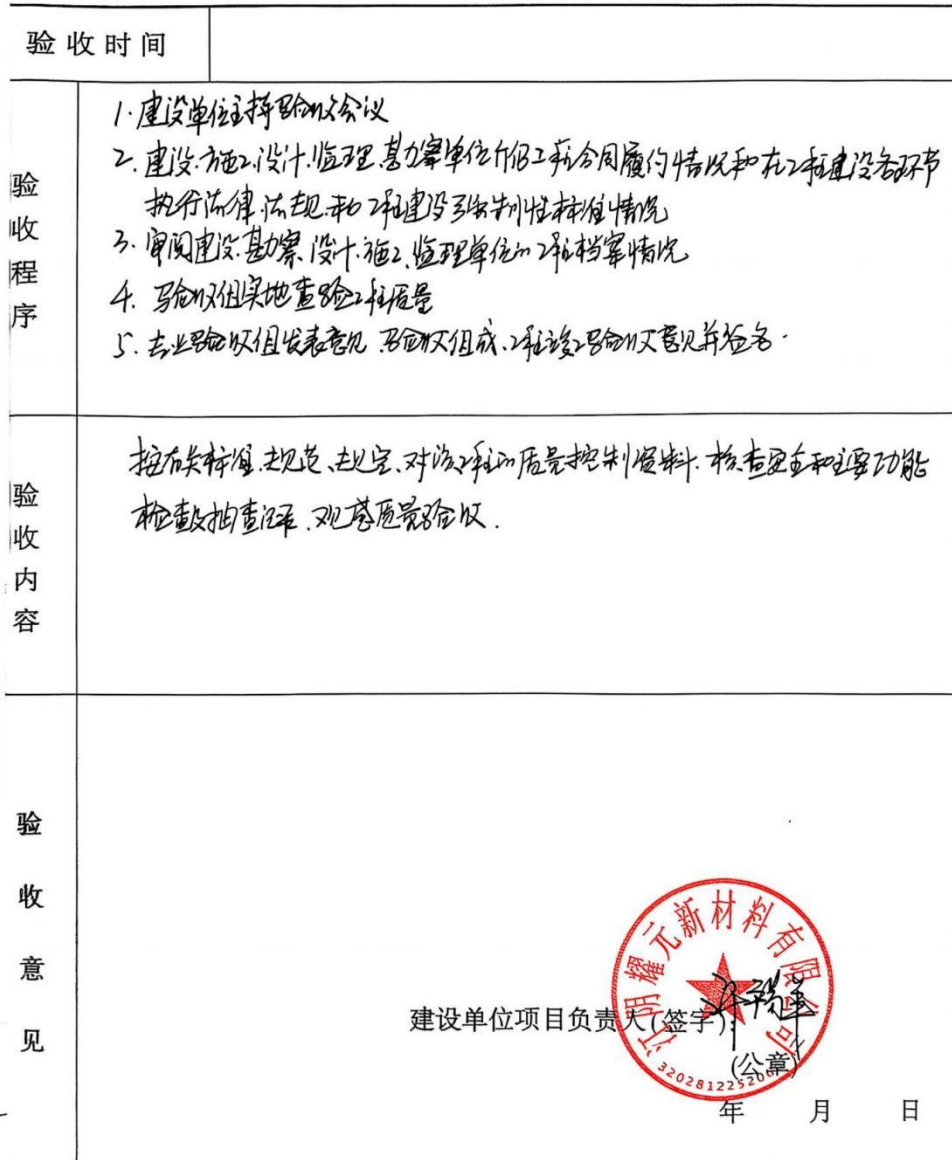 验收时间
验收程序
1. 建设单位主持验收会议
2. 建设、施工、设计、监理、勘察单位介绍工程合同履约情况和在工程建设各环节
执行法律、法规和工程建设强制性标准情况
3. 审阅建设、勘察、设计、施工、监理单位的工程档案情况
4. 验收组实地查验工程质量
5. 专业验收组发表意见、验收组成、工程竣工验收意见并签名.
验收内容
按有关标准、规范、规定、对该工程的质量控制资料、核查安全和主要功能
检查及抽查结果、观感质量验收.
验收意见
江阴耀元新材料有限公司
建设单位项目负责人(签字):
(公章)
年 月 日